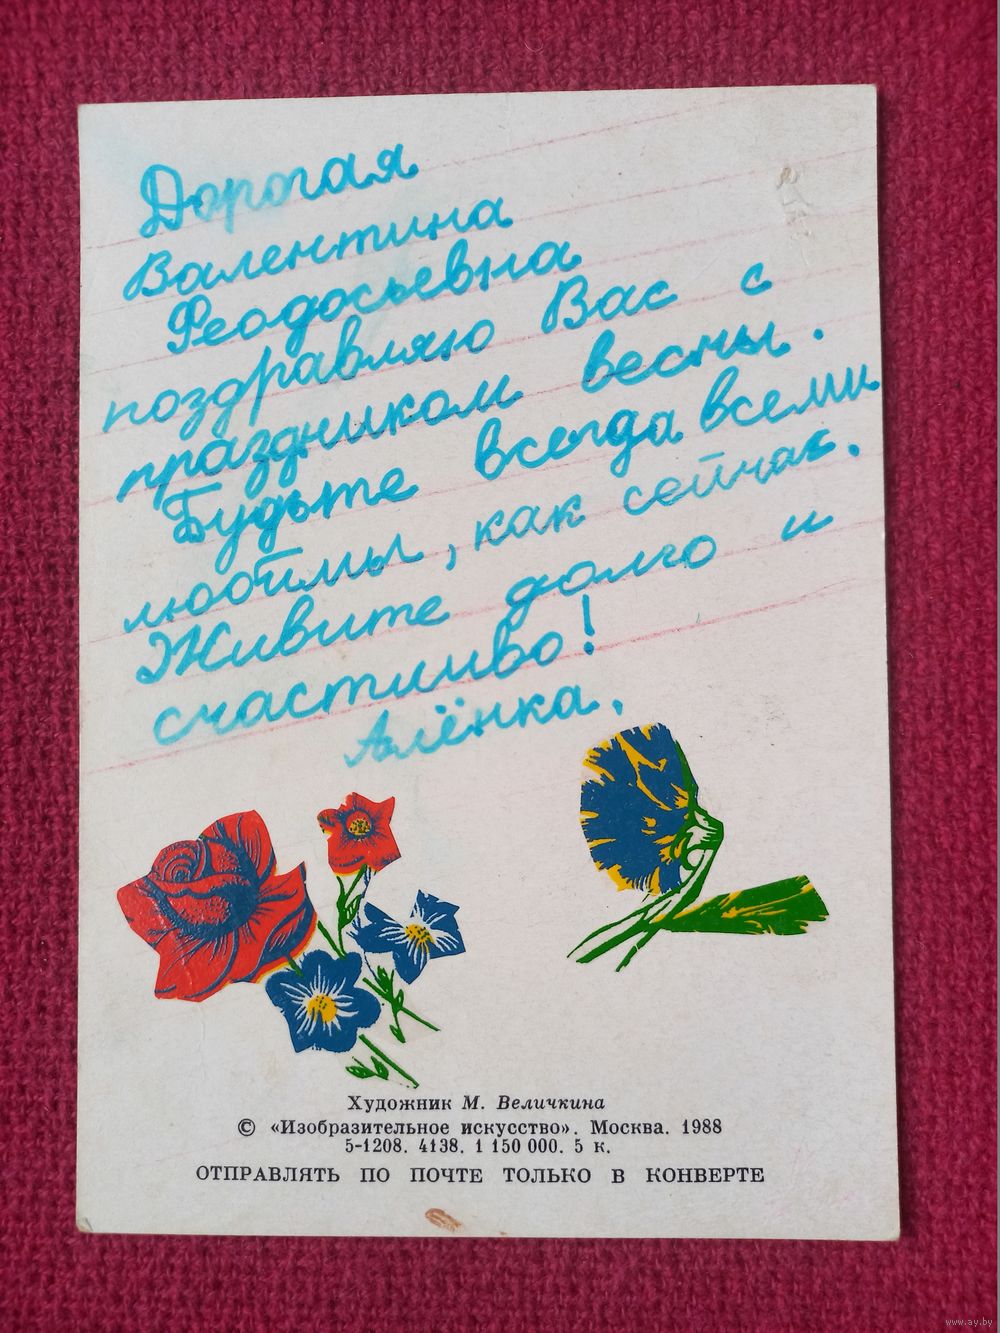 Дорогая
Валентина
Феодосьевна
поздравляю Вас с
праздником весны.
Будьте всегда всеми
любимы, как сейчас.
Живите долго и
счастливо!
Алёнка.
Художник М. Величкина
© «Изобразительное искусство». Москва. 1988
5-1208. 4138. 1 150 000. 5 к.
ОТПРАВЛЯТЬ ПО ПОЧТЕ ТОЛЬКО В КОНВЕРТЕ
www.ay.by